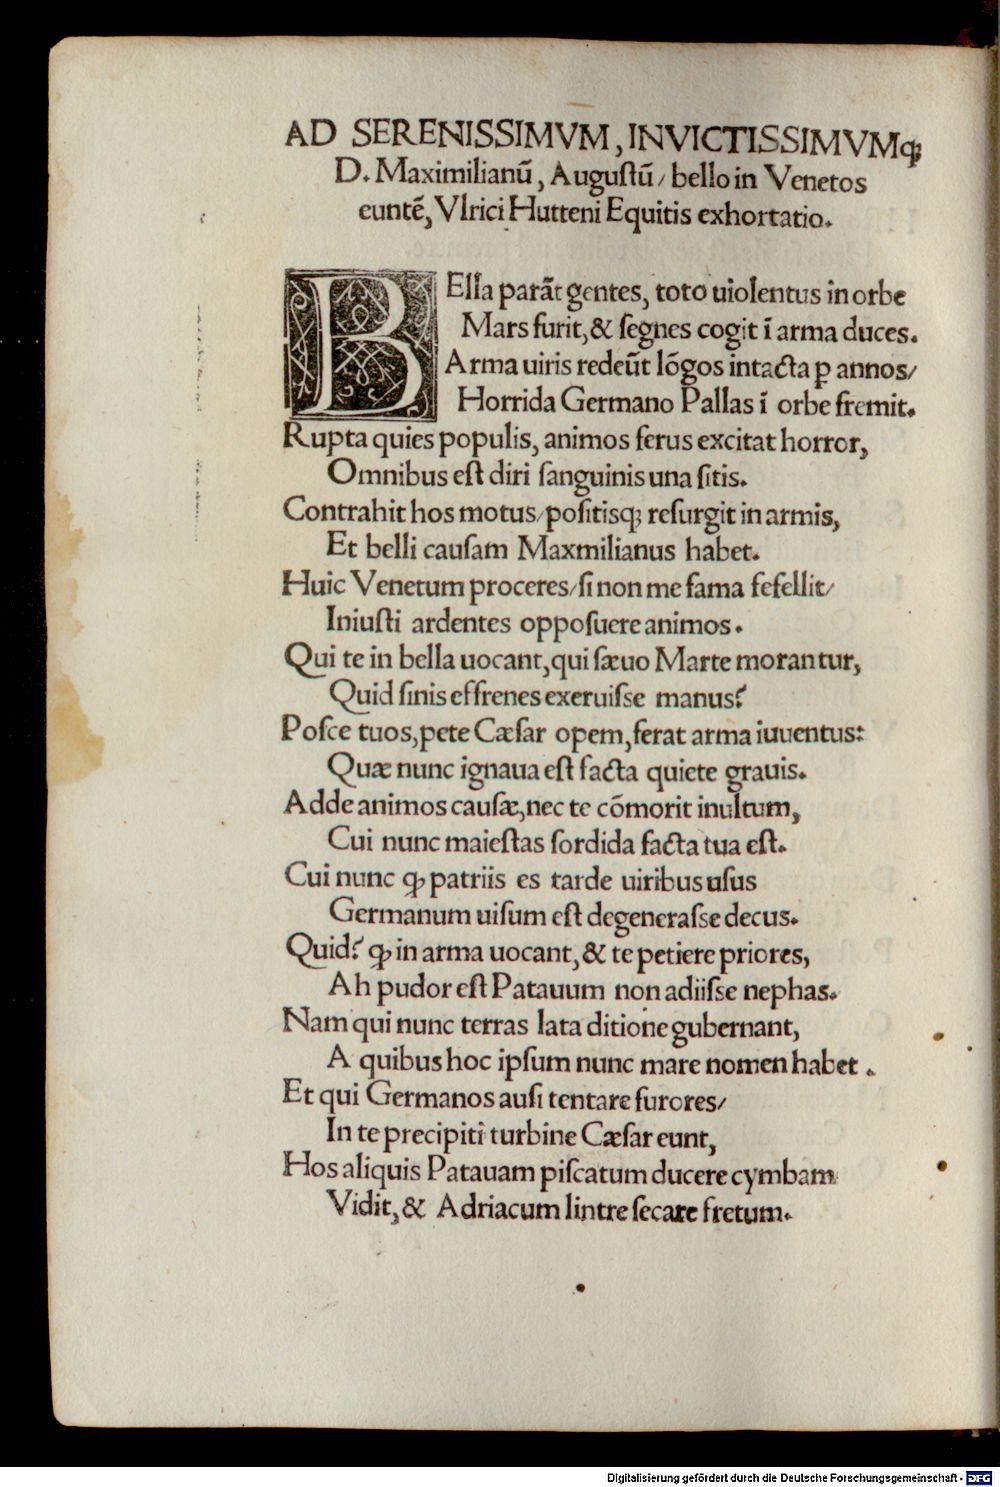 AD SERENISSIMVM, INVICTISSIMVMqꝫ
D. Maximilianũ, Auguſtũ/ bello in Venetos
euntẽ, Vlrici Hutteni Equitis exhortatio.
BElla parãt gentes, toto uiolentus in orbe
Mars furit, & ſegnes cogit ĩ arma duces.
Arma uiris redeũt lõgos intacta ꝑ annos/
Horrida Germano Pallas ĩ orbe fremit.
Rupta quies populis, animos ferus excitat horror,
Omnibus eſt diri ſanguinis una ſitis.
Contrahit hos motus/ poſitisqꝫ reſurgit in armis,
Et belli cauſam Maxmilianus habet.
Huic Venetum proceres/ ſi non me fama fefellit/
Iniuſti ardentes oppoſuere animos.
Qui te in bella uocant, qui ſæuo Marte morantur,
Quid ſinis effrenes exeruiſſe manus?
Poſce tuos, pete Cæſar opem, ferat arma iuuentus:
Quæ nunc ignaua eſt facta quiete grauis.
Adde animos cauſæ, nec te cõmorit inultum,
Cui nunc maieſtas ſordida facta tua eſt.
Cui nunc ꝙ patriis es tarde uiribus uſus
Germanum uiſum eſt degeneraſſe decus.
Quid? ꝙ in arma uocant, & te petiere priores,
Ah pudor eſt Patauum non adiiſſe nephas.
Nam qui nunc terras lata ditione gubernant,
A quibus hoc ipſum nunc mare nomen habet.
Et qui Germanos auſi tentare furores/
In te precipiti turbine Cæſar eunt,
Hos aliquis Patauam piſcatum ducere cymbam
Vidit, & Adriacum lintre ſecare fretum.
Digitalisierung gefördert durch die Deutsche Forschungsgemeinschaft - DFG